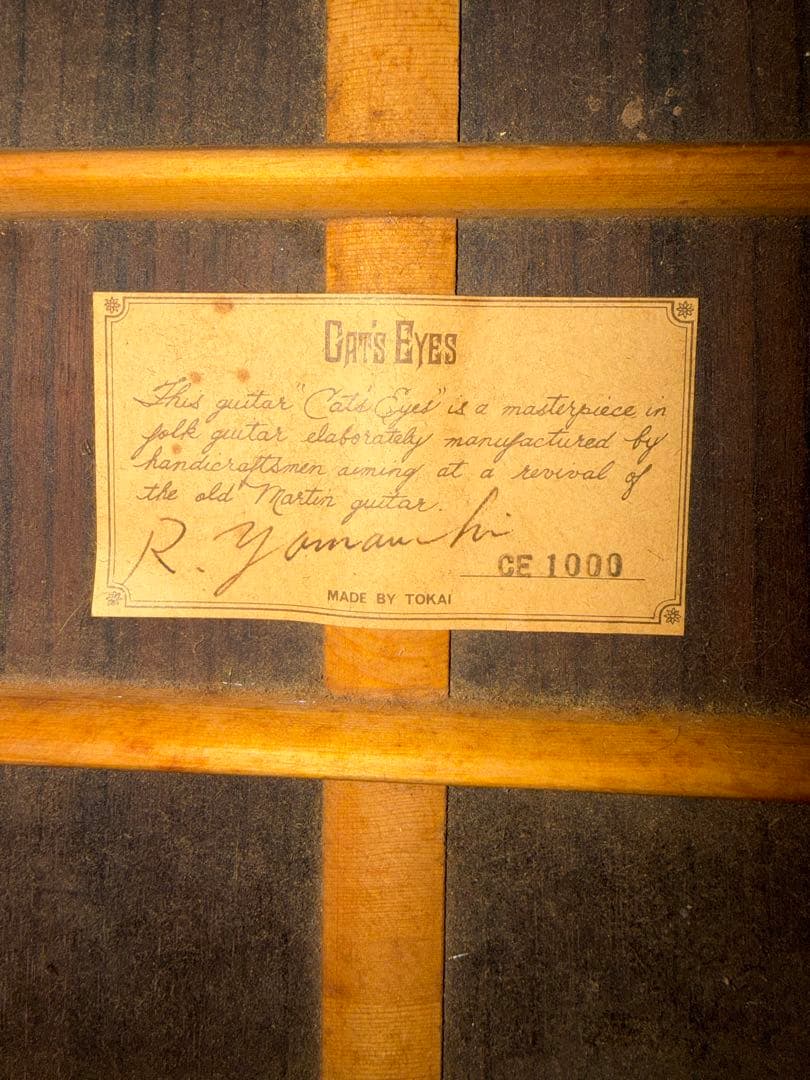 CAT'S EYES
This guitar "Cat's Eyes" is a masterpiece in
folk guitar elaborately manufactured by
handicraftsmen aiming at a revival of
the old Martin guitar.
R. Yamauchi
CE 1000
MADE BY TOKAI